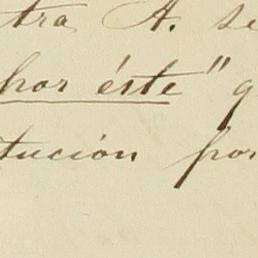 tra A. se
por éste" q
tución por